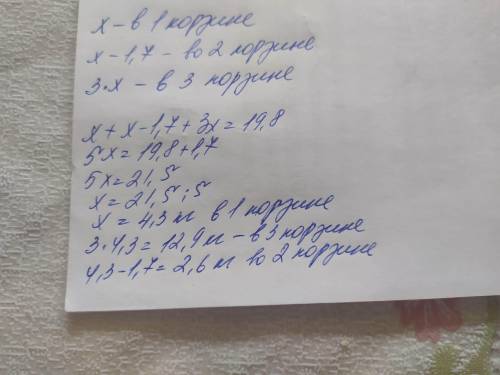 x – в 1 корзине
x – 1,7 – во 2 корзине
3·x – в 3 корзине
x + x – 1,7 + 3x = 19,8
5x = 19,8 + 1,7
5x = 21,5
x = 21,5 : 5
x = 4,3 кг в 1 корзине
3·4,3 = 12,9 кг – в 3 корзине
4,3 – 1,7 = 2,6 кг во 2 корзине